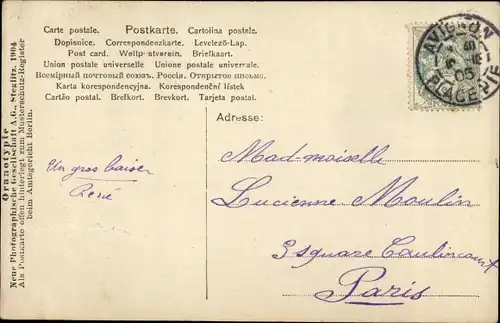 Carte postale. Postkarte. Cartolina postale.
Dopisnice. Correspondenzkarte. Levelező-Lap.
Post card. Weltpostverein. Briefkaart.
Union postale universelle. Unione postale universale.
Всемірный почтовый союзъ. Россія. Открытое письмо.
Karta korespondencyjna. Korespondenční lístek
Cartão postal. Brefkort. Brevkort. Tarjeta postal.
AVIGNON
05
Adresse:
Oranotypie
Neue Photographische Gesellschaft A.G., Steglitz. 1904
Als Postkarte offen hinterlegt zum Musterschutz-Register
beim Amtsgericht Berlin.
Un gros baiser
René
Mademoiselle
Lucienne Moulin
3 square Caulincourt
Paris